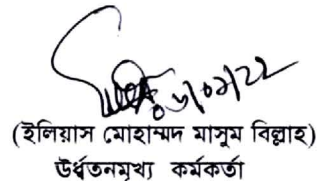 (ইলিয়াস মোহাম্মদ মাসুম বিল্লাহ)
উর্ধ্বতনমুখ্য কর্মকর্তা